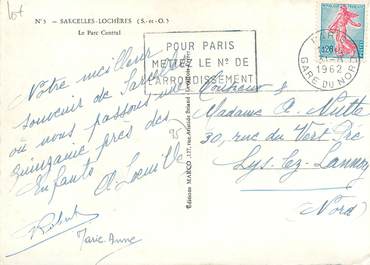 lot
N° 5 - SARCELLES-LOCHÈRES (S.-et-O.)
Le Parc Central
POUR PARIS
METTEZ LE N° DE
L'ARRONDISSEMENT
PARIS
1962
GARE DU NORD
Notre meilleur
souvenir de Sarcelles
où nous passons une
quinzaine près des
Enfants
95
Robert
Marie Anne
Editions MARCO
Monsieur &
Madame A. Nutte
30, rue du Vert Pré
Lys-lez-Lannoy
(Nord)